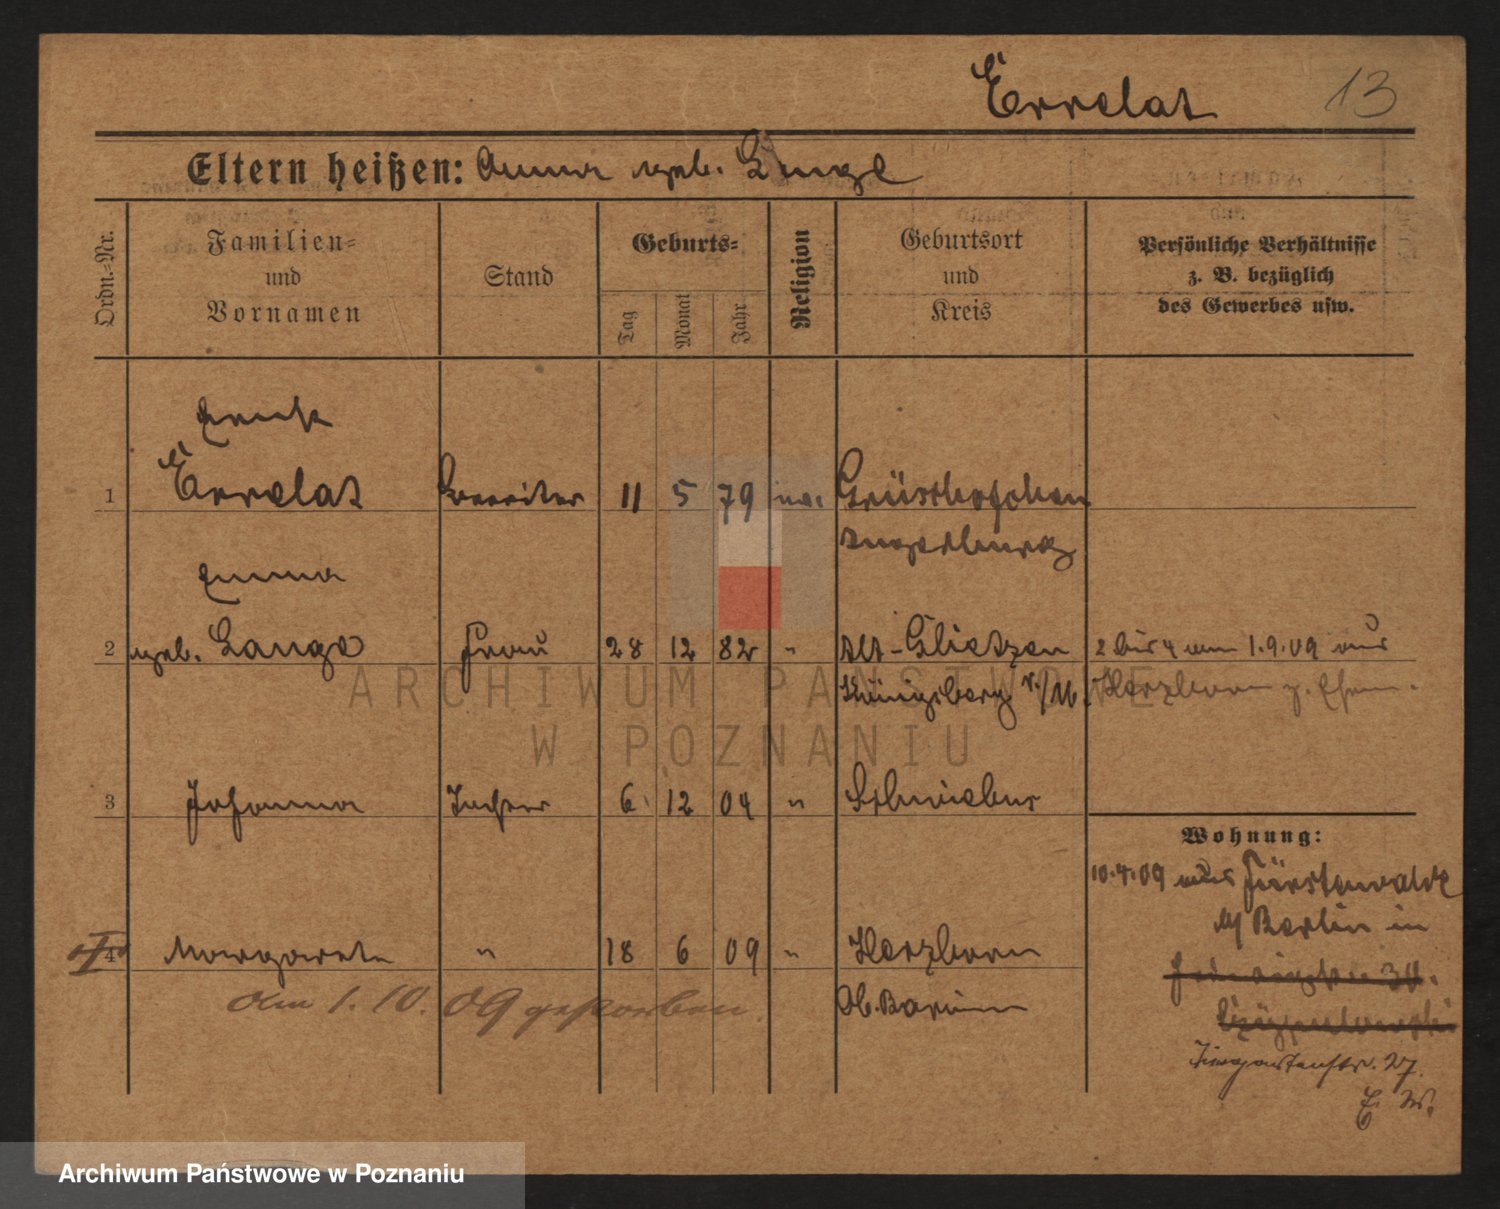 Errelat 13
Eltern heißen: Anna geb. Lange
Ordn.-Nr.
Familien-
und
Vornamen
Stand
Geburts-
Tag
Monat
Jahr
Religion
Geburtsort
und
Kreis
Persönliche Verhältnisse
z. B. bezüglich
des Gewerbes usw.
1
Errelat 11 5 79
Angerburg
Emma
2 geb. Lange Frau 28 12 82 " Alt-Glietzen 2 bis 4 am 1.9.09 aus
Königsberg N./M. Herzhorn
3 Johanna Tochter 6. 12 04 " Schwiebus
Wohnung:
10.4.09 aus Fürstenwalde
Berlin in
4 Margarete " 18 6 09 " Herzhorn
am 1. 10. 09 gestorben.
Tiergartenstr. 27.
ARCHIWUM PAŃSTWOWE
W POZNANIU
Archiwum Państwowe w Poznaniu